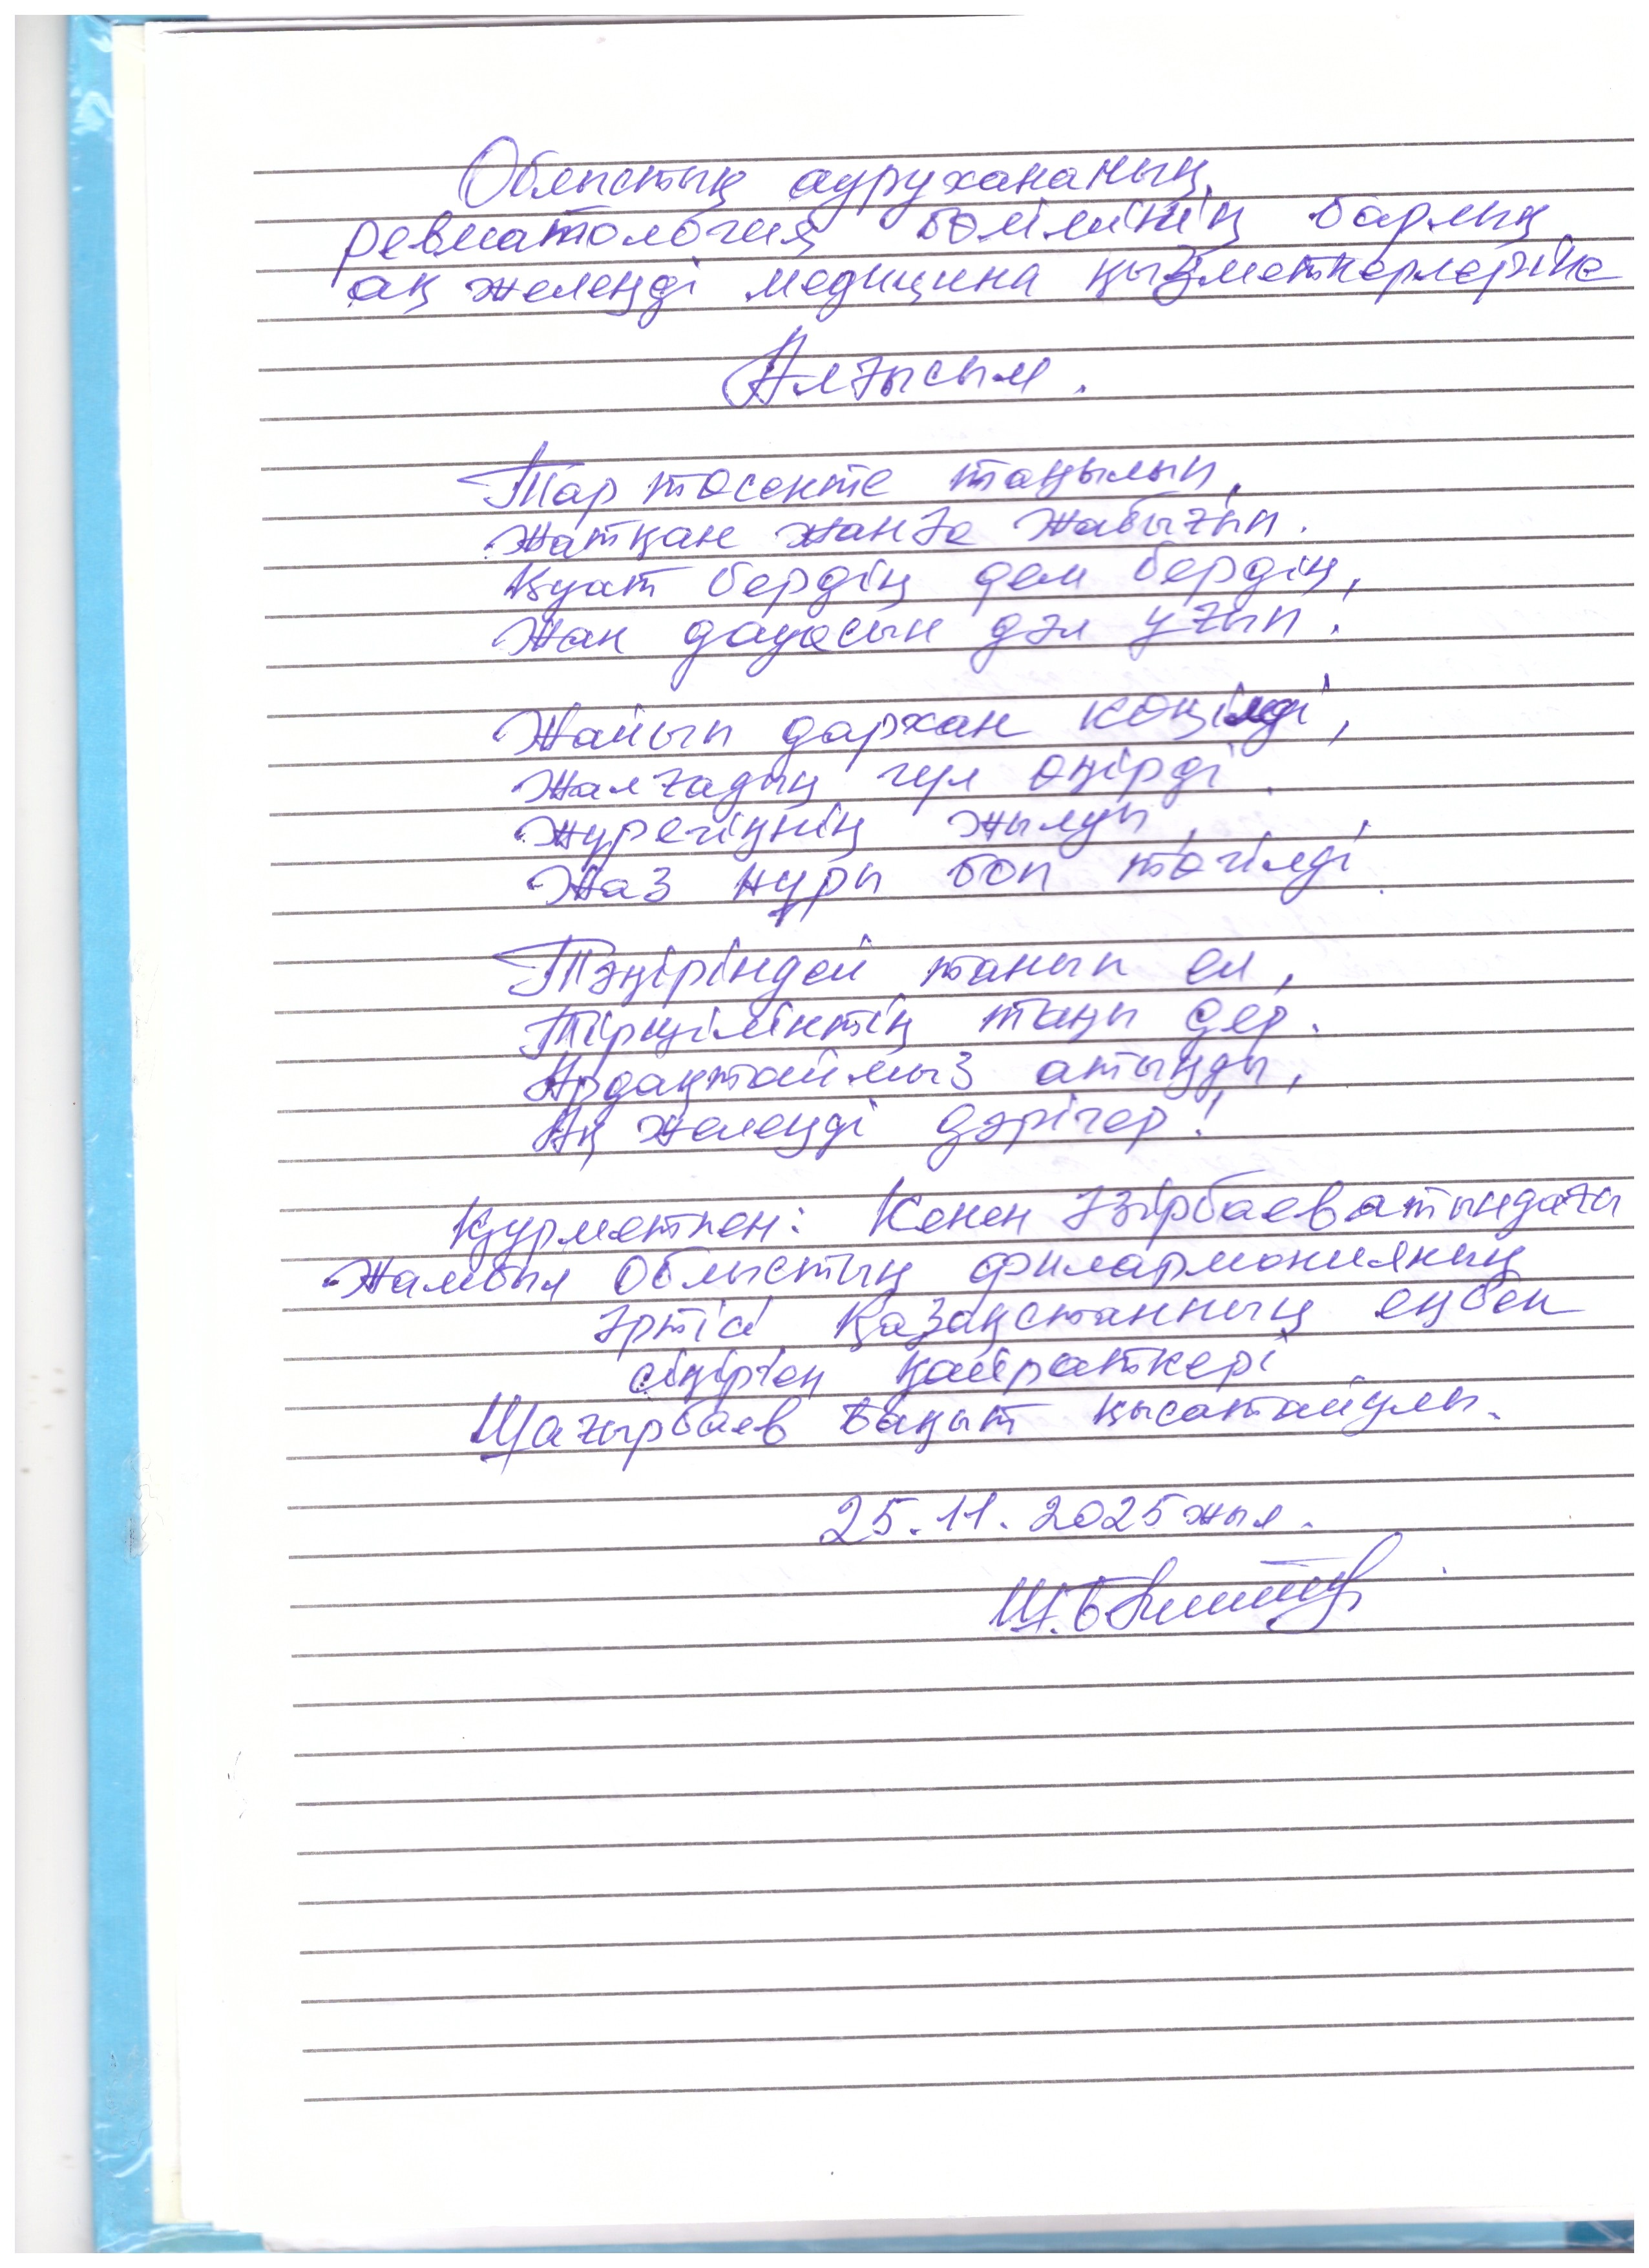 Облыстық аурухананың
ревматология бөлімінің барлық
ақ желеңді медицина қызметкерлеріне
Алғысым.
Тар төсекте таңылып,
Жатқан жанға жабығып.
Қуат бердің дем бердің,
Жан дауасын дәл ұғып.
Жайып дархан көңілді,
Жалғадың гүл өңірді.
Жүрегіңнің жылуы,
Жаз нұры боп төгілді.
Тәңіріндей танып ел,
Тіршіліктің таңы дер.
Ардақтаймыз атыңды,
Ақ желеңді дәрігер!
Құрметпен: Кенен Әзірбаев атындағы
Жамбыл Облыстық филармонияның
әртісі Қазақстанның еңбек
сіңірген қайраткері
Шағырбаев Бақыт Қысатайұлы.
25.11.2025 жыл.